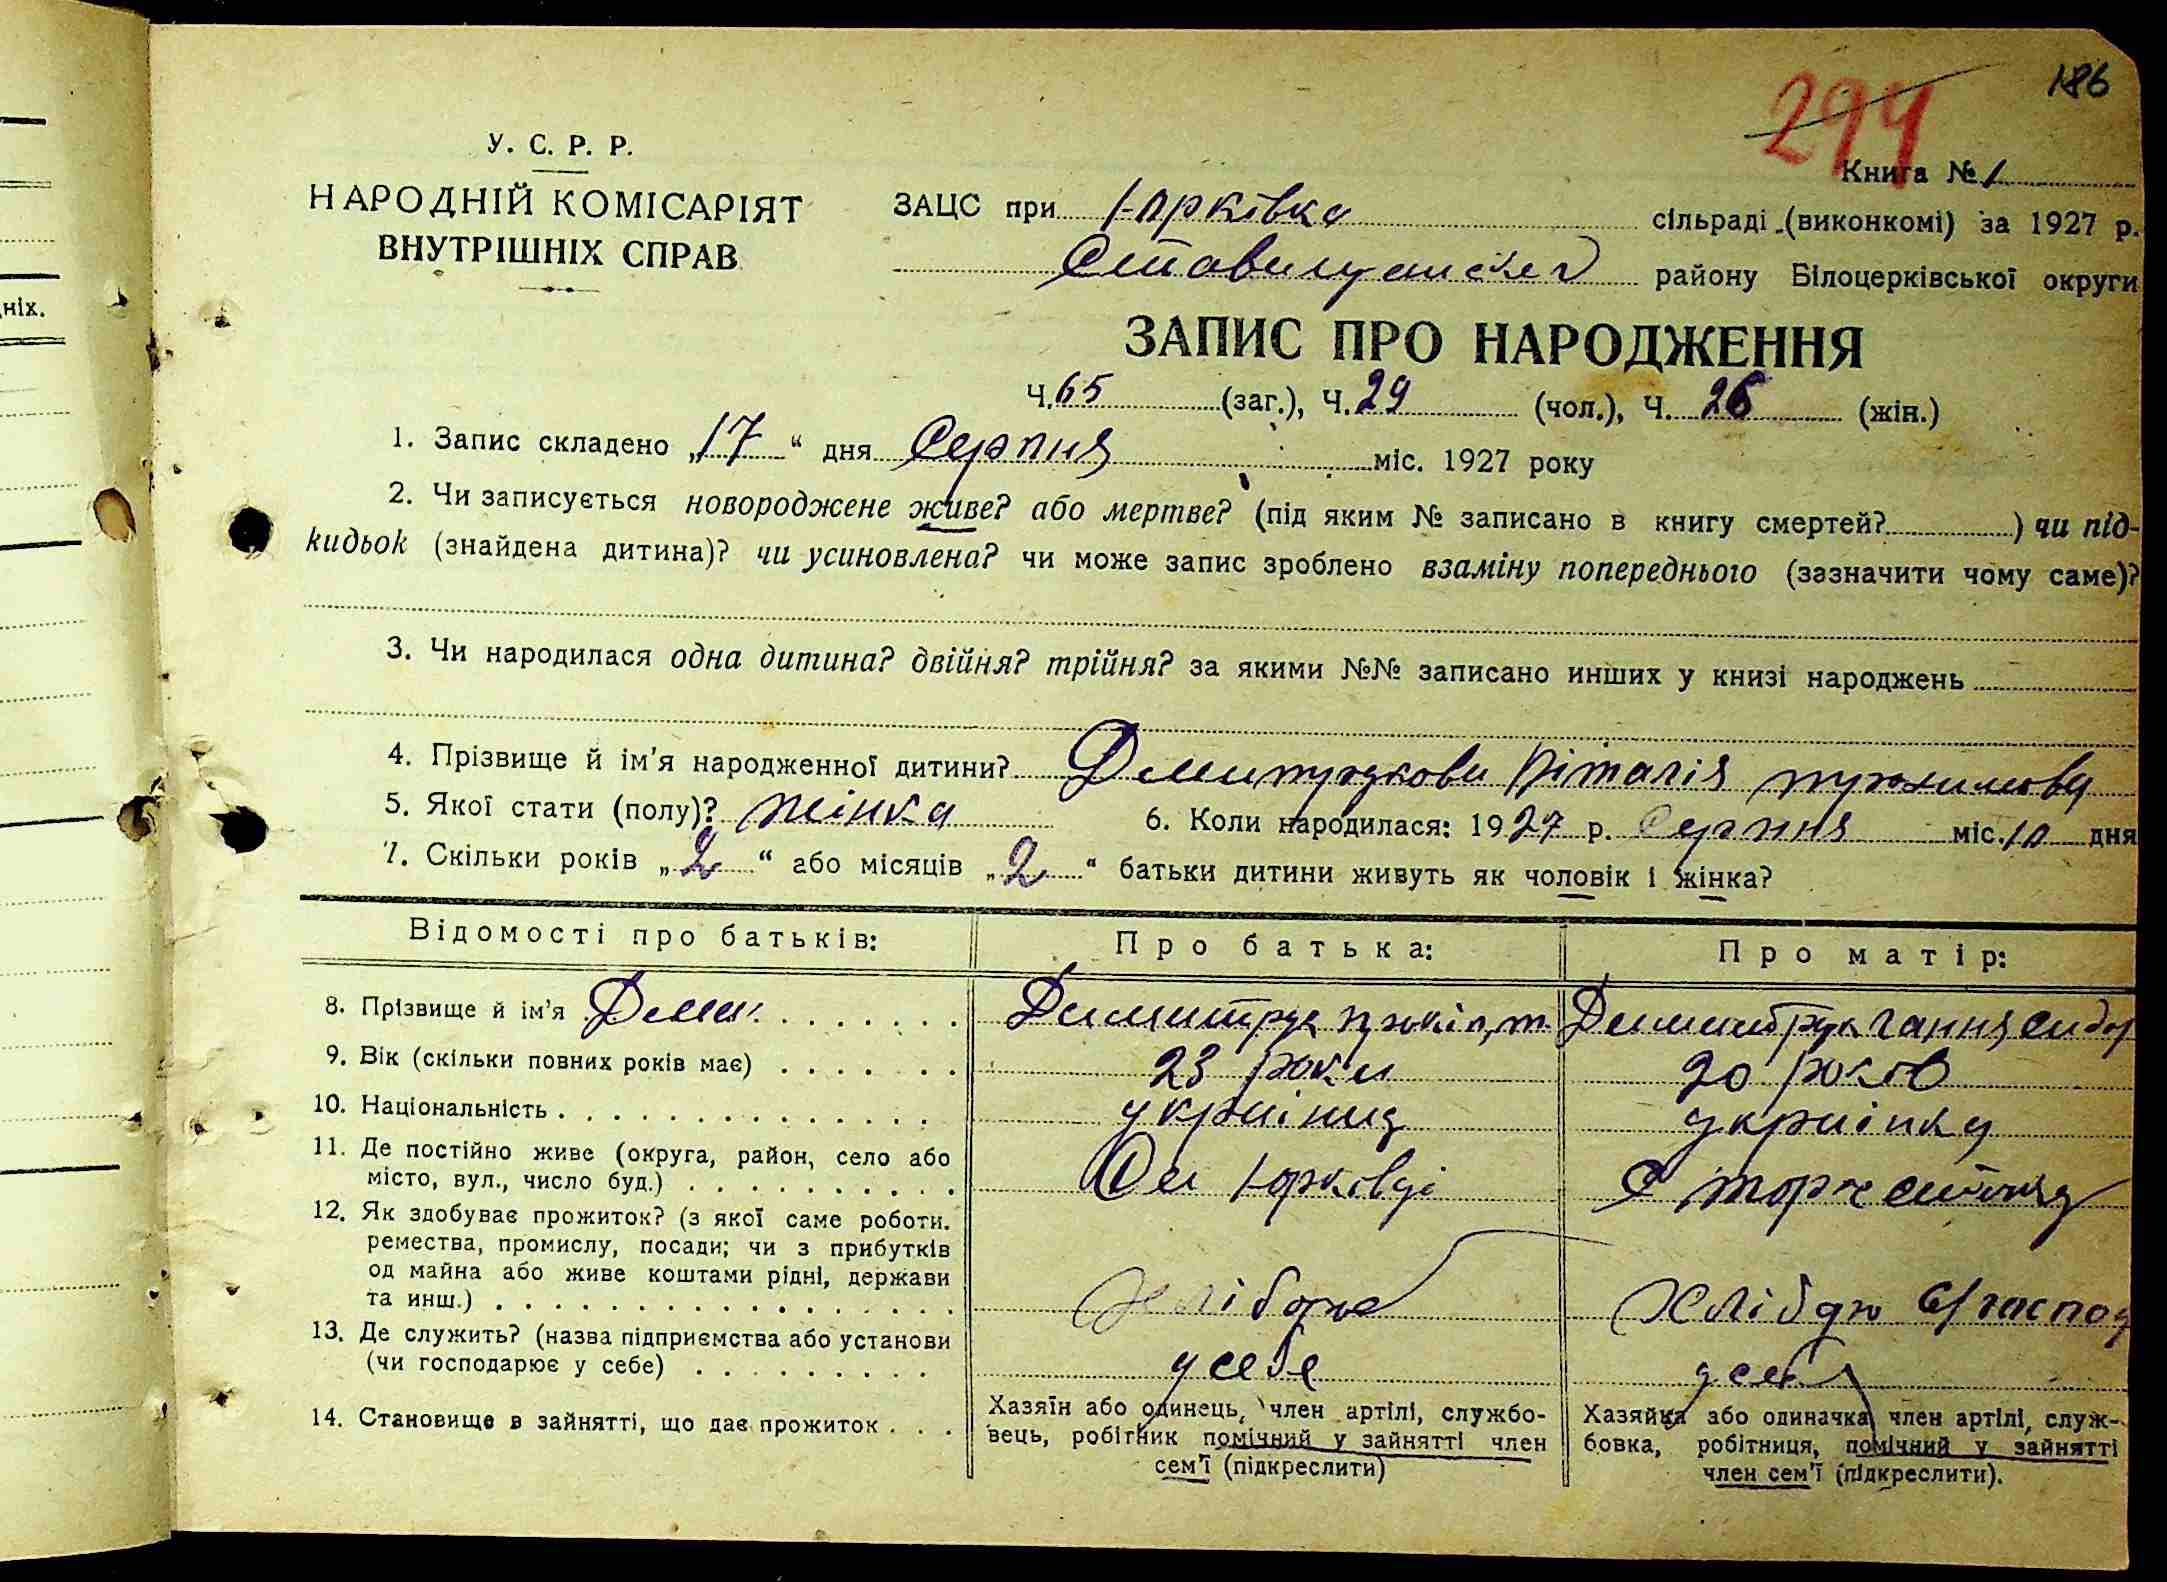 186
299
У. С. Р. Р.
НАРОДНІЙ КОМІСАРІЯТ
ВНУТРІШНІХ СПРАВ
Книга № 1
ЗАЦС при Юрківка сільраді (виконкомі) за 1927 р.
району Білоцерківської округи
ЗАПИС ПРО НАРОДЖЕННЯ
Ч. 65 (заг.), Ч. 29 (чол.), Ч. 26 (жін.)
1. Запис складено „17“ дня Серпня міс. 1927 року
2. Чи записується новороджене живе? або мертве? (під яким № записано в книгу смертей? ) чи під-
кидьок (знайдена дитина)? чи усиновлена? чи може запис зроблено взаміну попереднього (зазначити чому саме)?
3. Чи народилася одна дитина? двійня? трійня? за якими №№ записано инших у книзі народжень
4. Прізвище й ім'я народженної дитини?
5. Якої стати (полу)? жінка 6. Коли народилася: 1927 р. Серпня міс. 10 дня
7. Скільки років „2“ або місяців „2“ батьки дитини живуть як чоловік і жінка?
ніх.
Відомості про батьків: Про батька: Про матір:
8. Прізвище й ім'я
9. Вік (скільки повних років має) 23 роки 20 років
10. Національність українця українка
11. Де постійно живе (округа, район, село або
місто, вул., число буд.) Юрківці С
12. Як здобуває прожиток? (з якої саме роботи.
ремества, промислу, посади; чи з прибутків
од майна або живе коштами рідні, держави
та инш.)
13. Де служить? (назва підприємства або установи
(чи господарює у себе) у себе у себе
14. Становище в зайнятті, що дає прожиток
Хазяїн або одинець, член артілі, службо-
вець, робітник помічний у зайнятті член
сем'ї (підкреслити)
Хазяйка або одиначка член артілі, служ-
бовка, робітниця, помічний у зайнятті
член сем'ї (підкреслити).